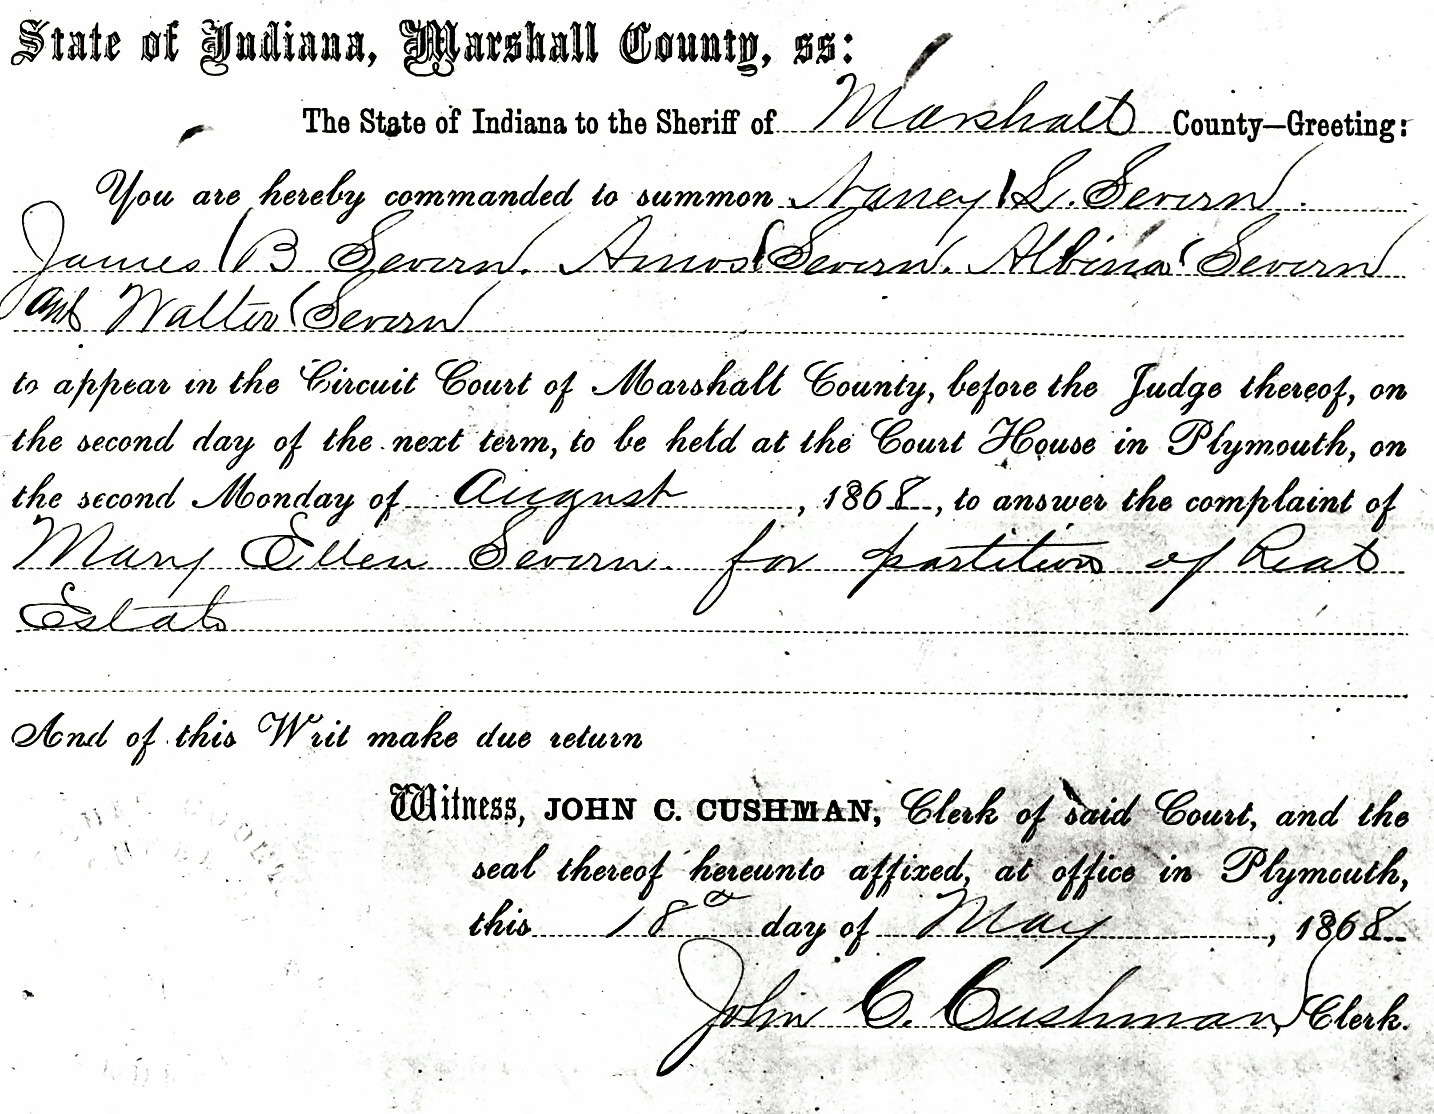 State of Indiana, Marshall County, ss:
The State of Indiana to the Sheriff of Marshall County—Greeting:
You are hereby commanded to summon Nancy L. Severn.
James B Severn. Amos Severn. Albina Severn
and Walter Severn
to appear in the Circuit Court of Marshall County, before the Judge thereof, on
the second day of the next term, to be held at the Court House in Plymouth, on
the second Monday of August, 1868, to answer the complaint of
Mary Ellen Severn. for partition of Real
Estate
And of this Writ make due return
Witness, JOHN C. CUSHMAN, Clerk of said Court, and the
seal thereof hereunto affixed, at office in Plymouth,
this 18th day of May, 1868
John C. Cushman, Clerk.